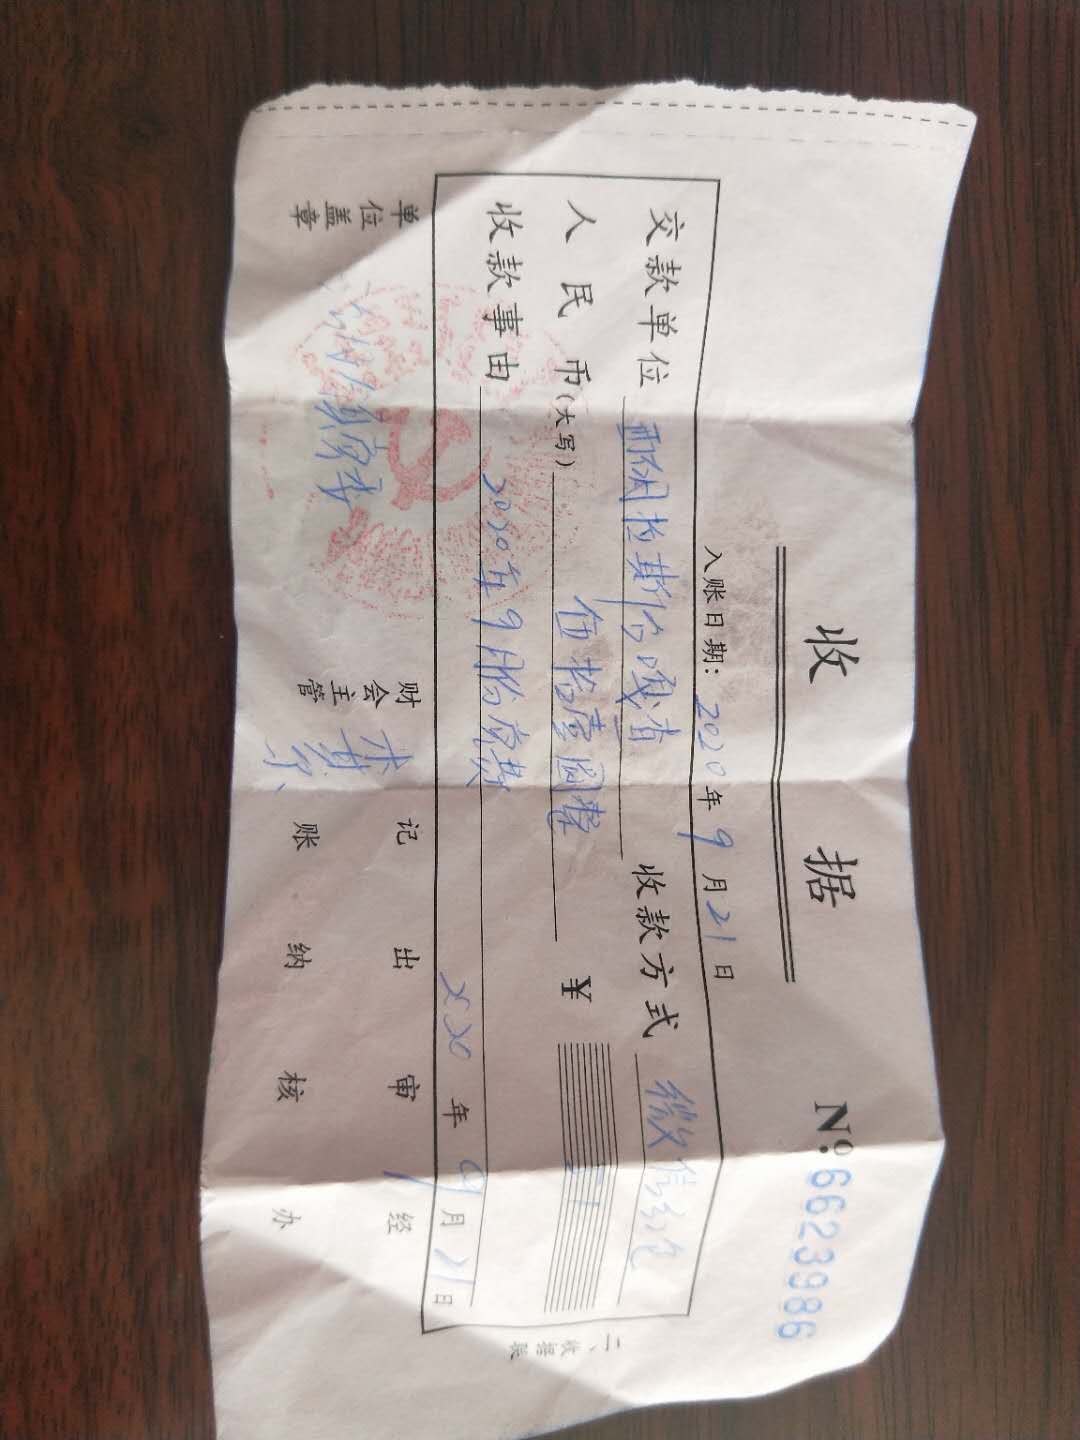 收 据
№:6623986
入账日期: 2020 年 9 月 21 日
交款单位 收款方式 微信红包
人民币(大写) 伍拾壹圆整 ¥ 51
收款事由 2020年9月份党费
2020 年 9 月 21 日
单位盖章 财会主管 记账 出纳 审核 经办
二、收据联